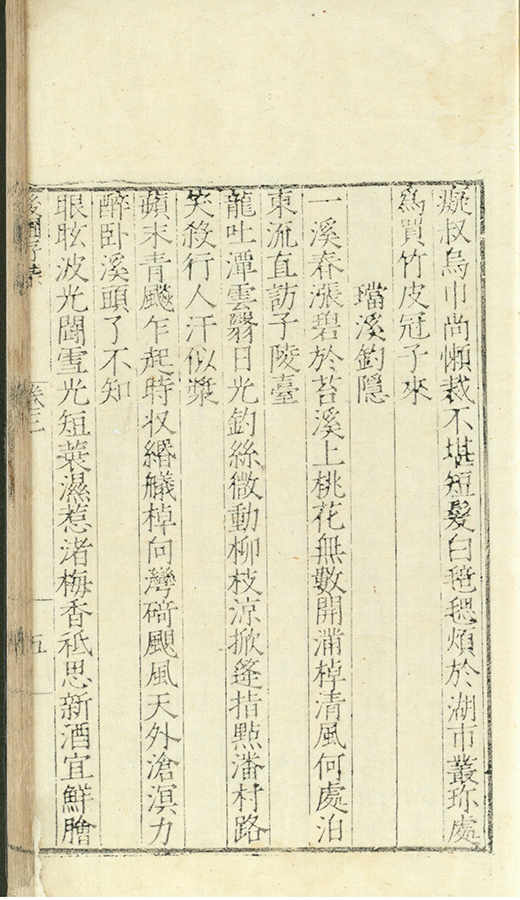 癡叔烏巾尚懶裁不堪短髮白毰毸煩於湖市叢珎處
爲買竹皮冠子來
璫溪釣隐
一溪春漲碧於苔溪上桃花無數開滿棹清風何處泊
東流直訪子陵臺
龍吐潭雲翳日光釣絲微動柳枝凉掀篷指點潘村路
笑殺行人汗似漿
蘋末青飈乍起時収緡艤棹向灣碕颶風天外滄溟力
醉卧溪頭了不知
眼眩波光闘雪光短蓑濕惹渚梅香祇思新酒宜鮮膾
卷三
五